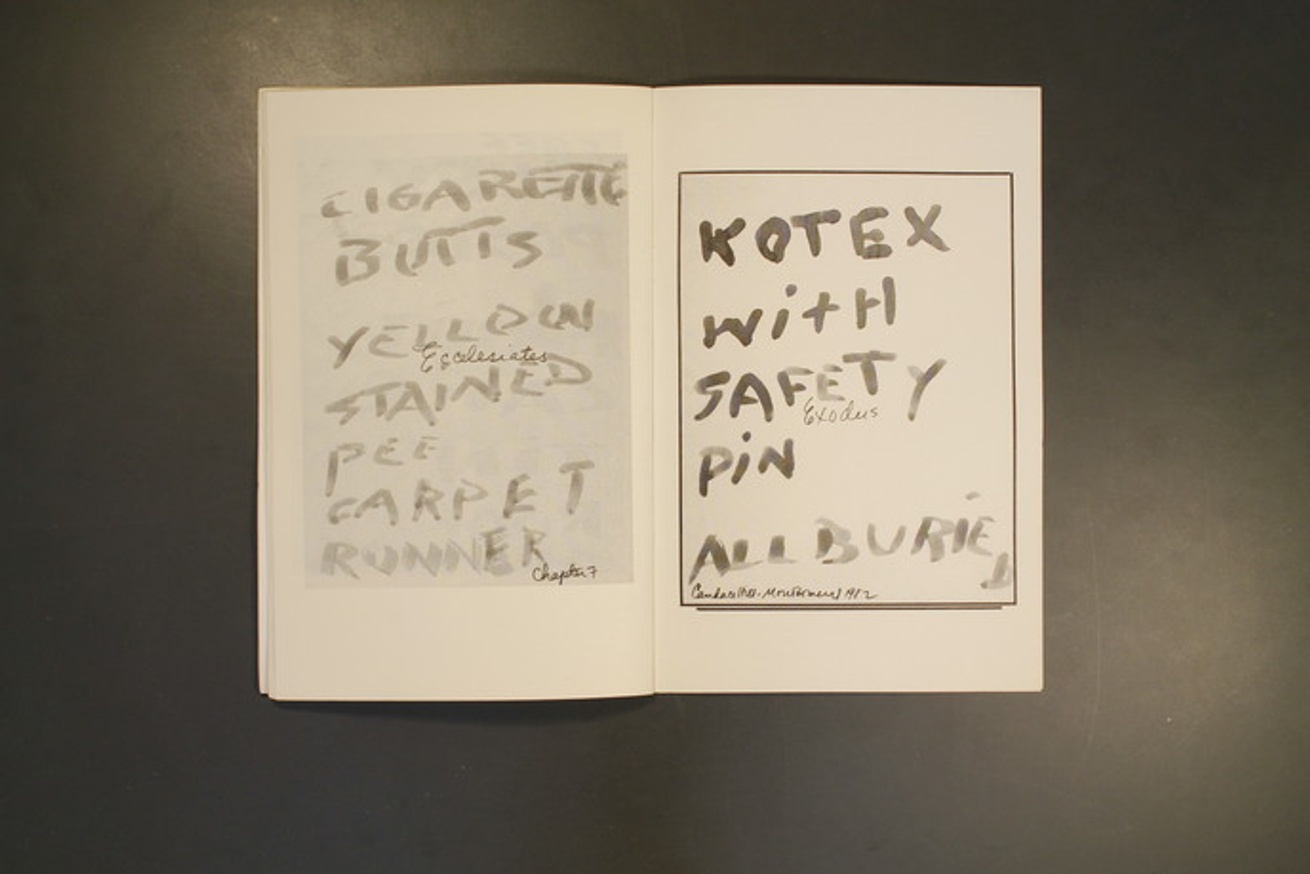 CIGARETTE
BUTTS
YELLOW
Ecclesiates
STAINED
PEE
CARPET
RUNNER
Chapter 7
KOTEX
WitH
SAFETY
Exodus
PiN
ALL BURIED
Candace Hill-Montgomery 1982